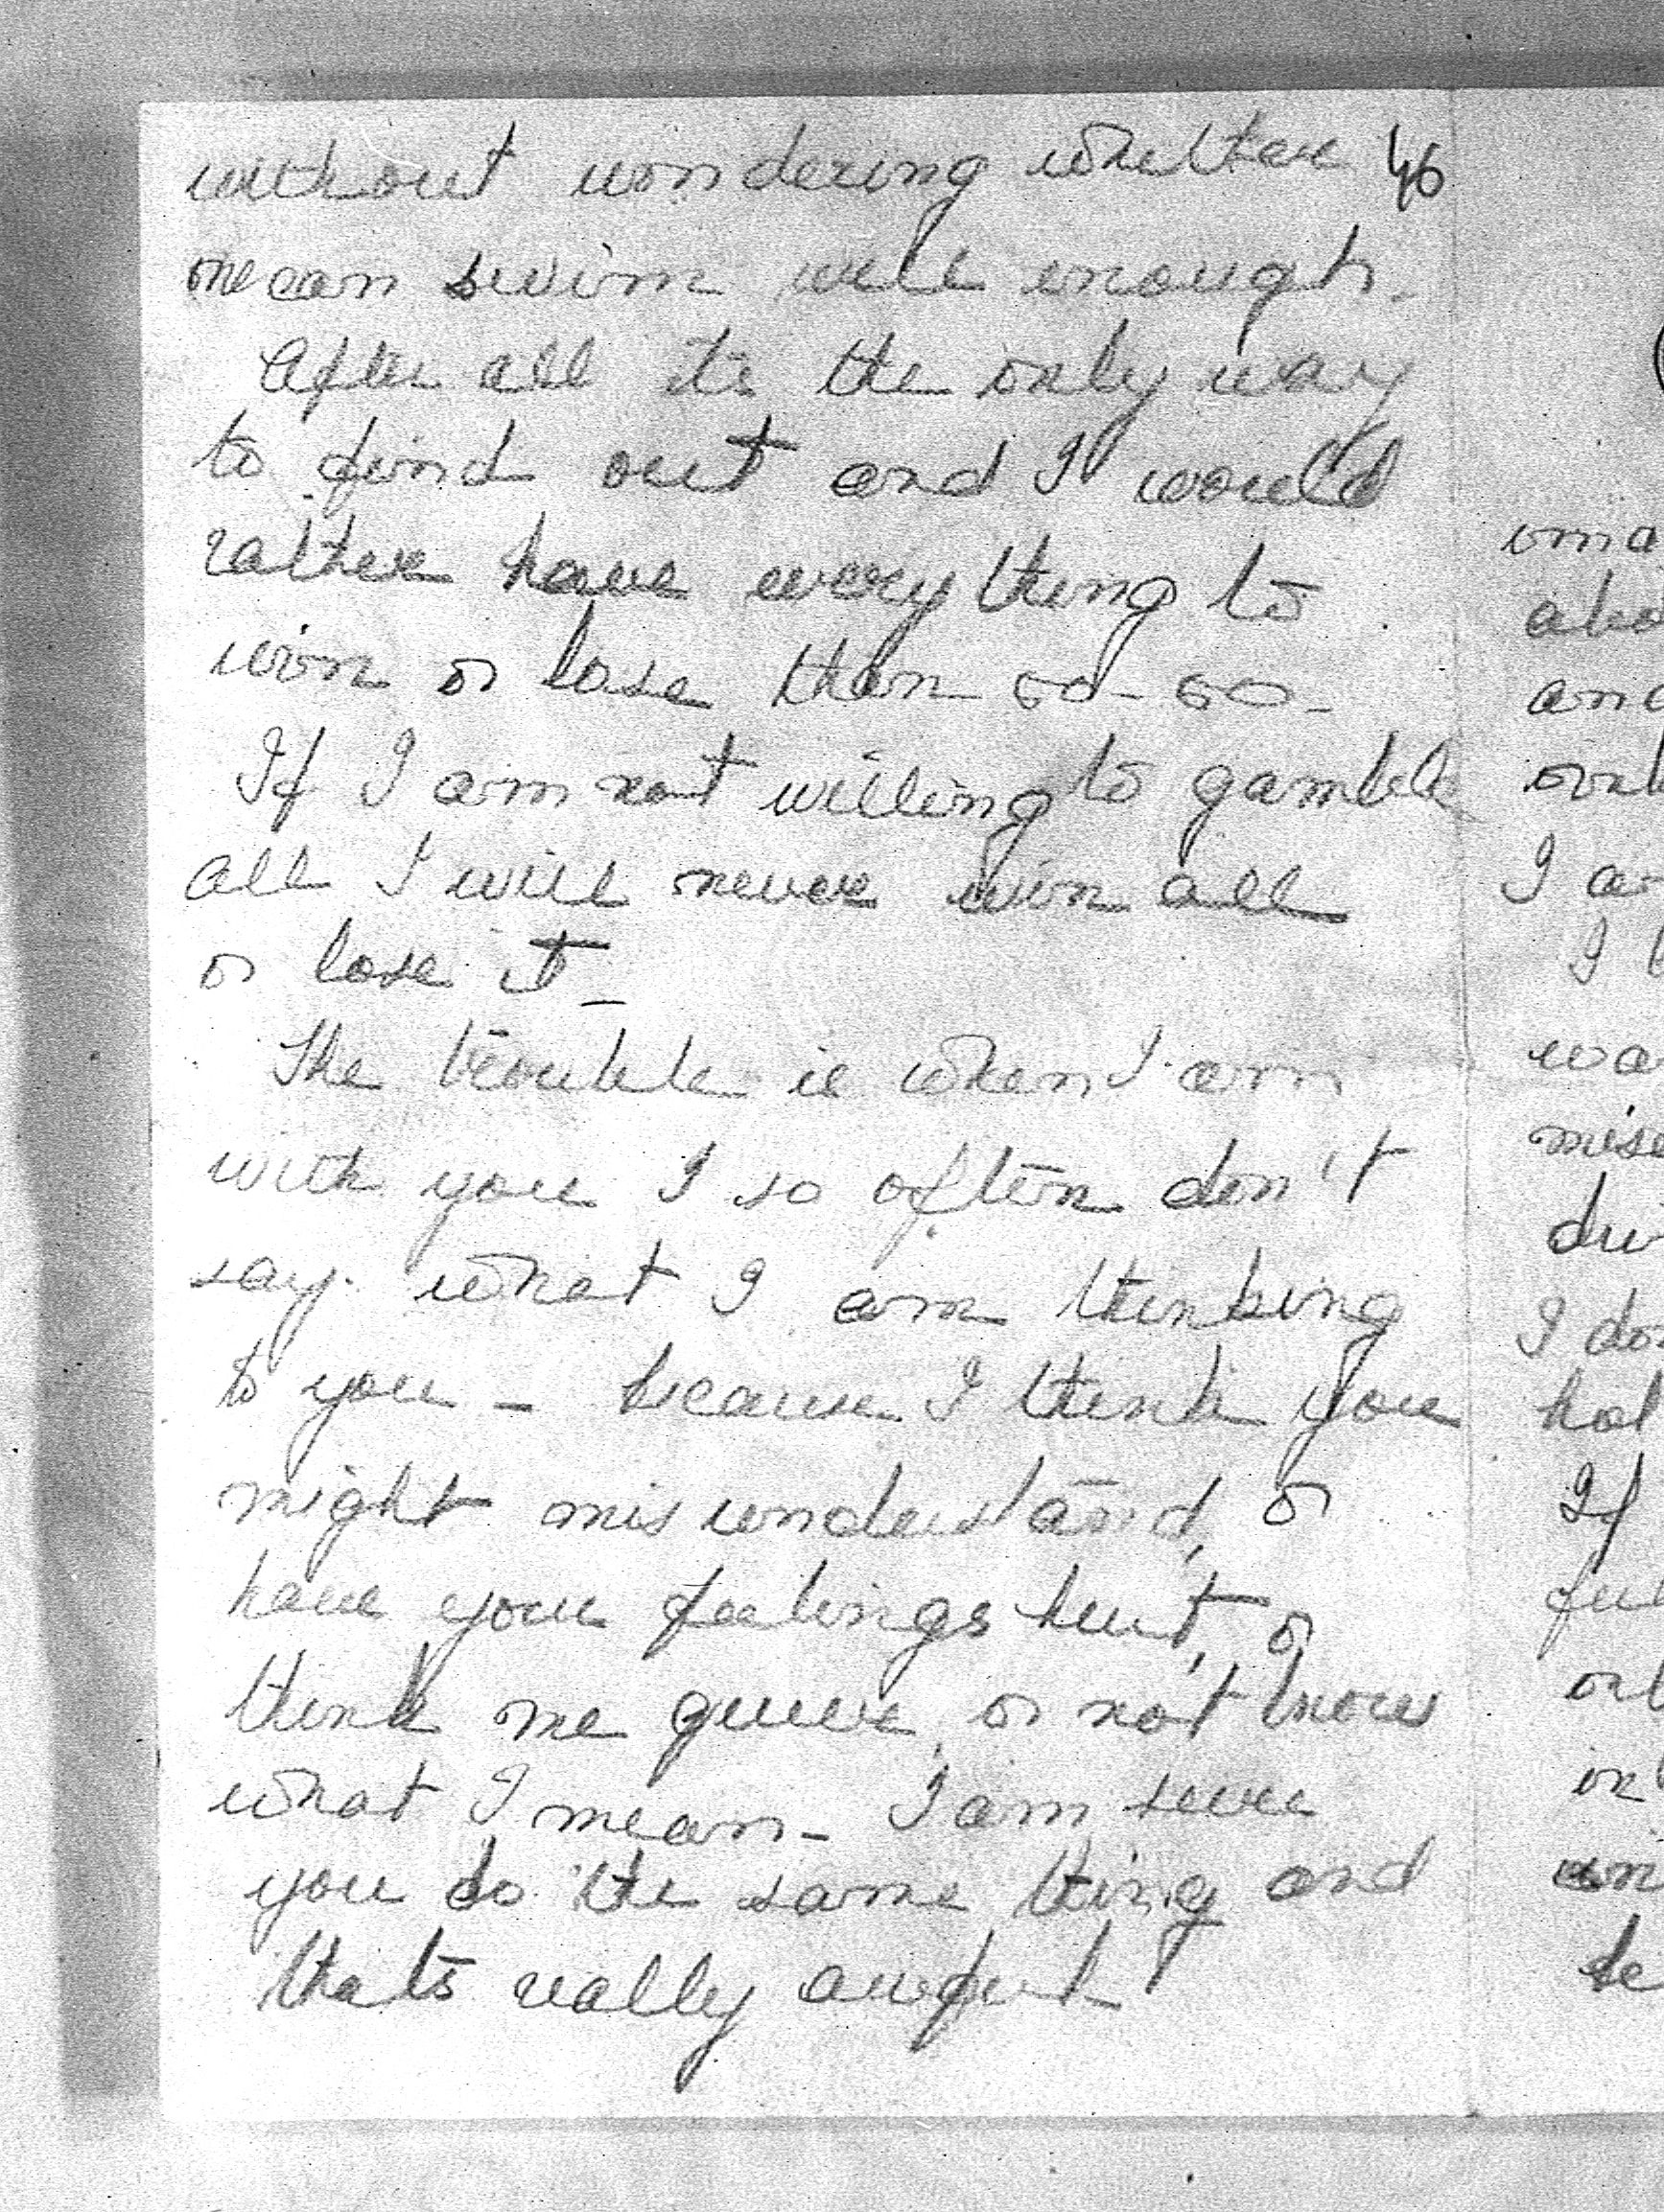 without wondering whether 46
one can swim well enough.
After all its the only way
to find out and I would
rather have everything to
win or lose than so-so-
If I am not willing to gamble
all I will never win all
or lose it-
The trouble is when I am
with you I so often don't
say what I am thinking
to you - because I think you
might misunderstand, or
have your feelings hurt, or
think me queer, or not know
what I mean- I am sure
you do the same thing and
thats really awful-
and
I
I
wa
I
If